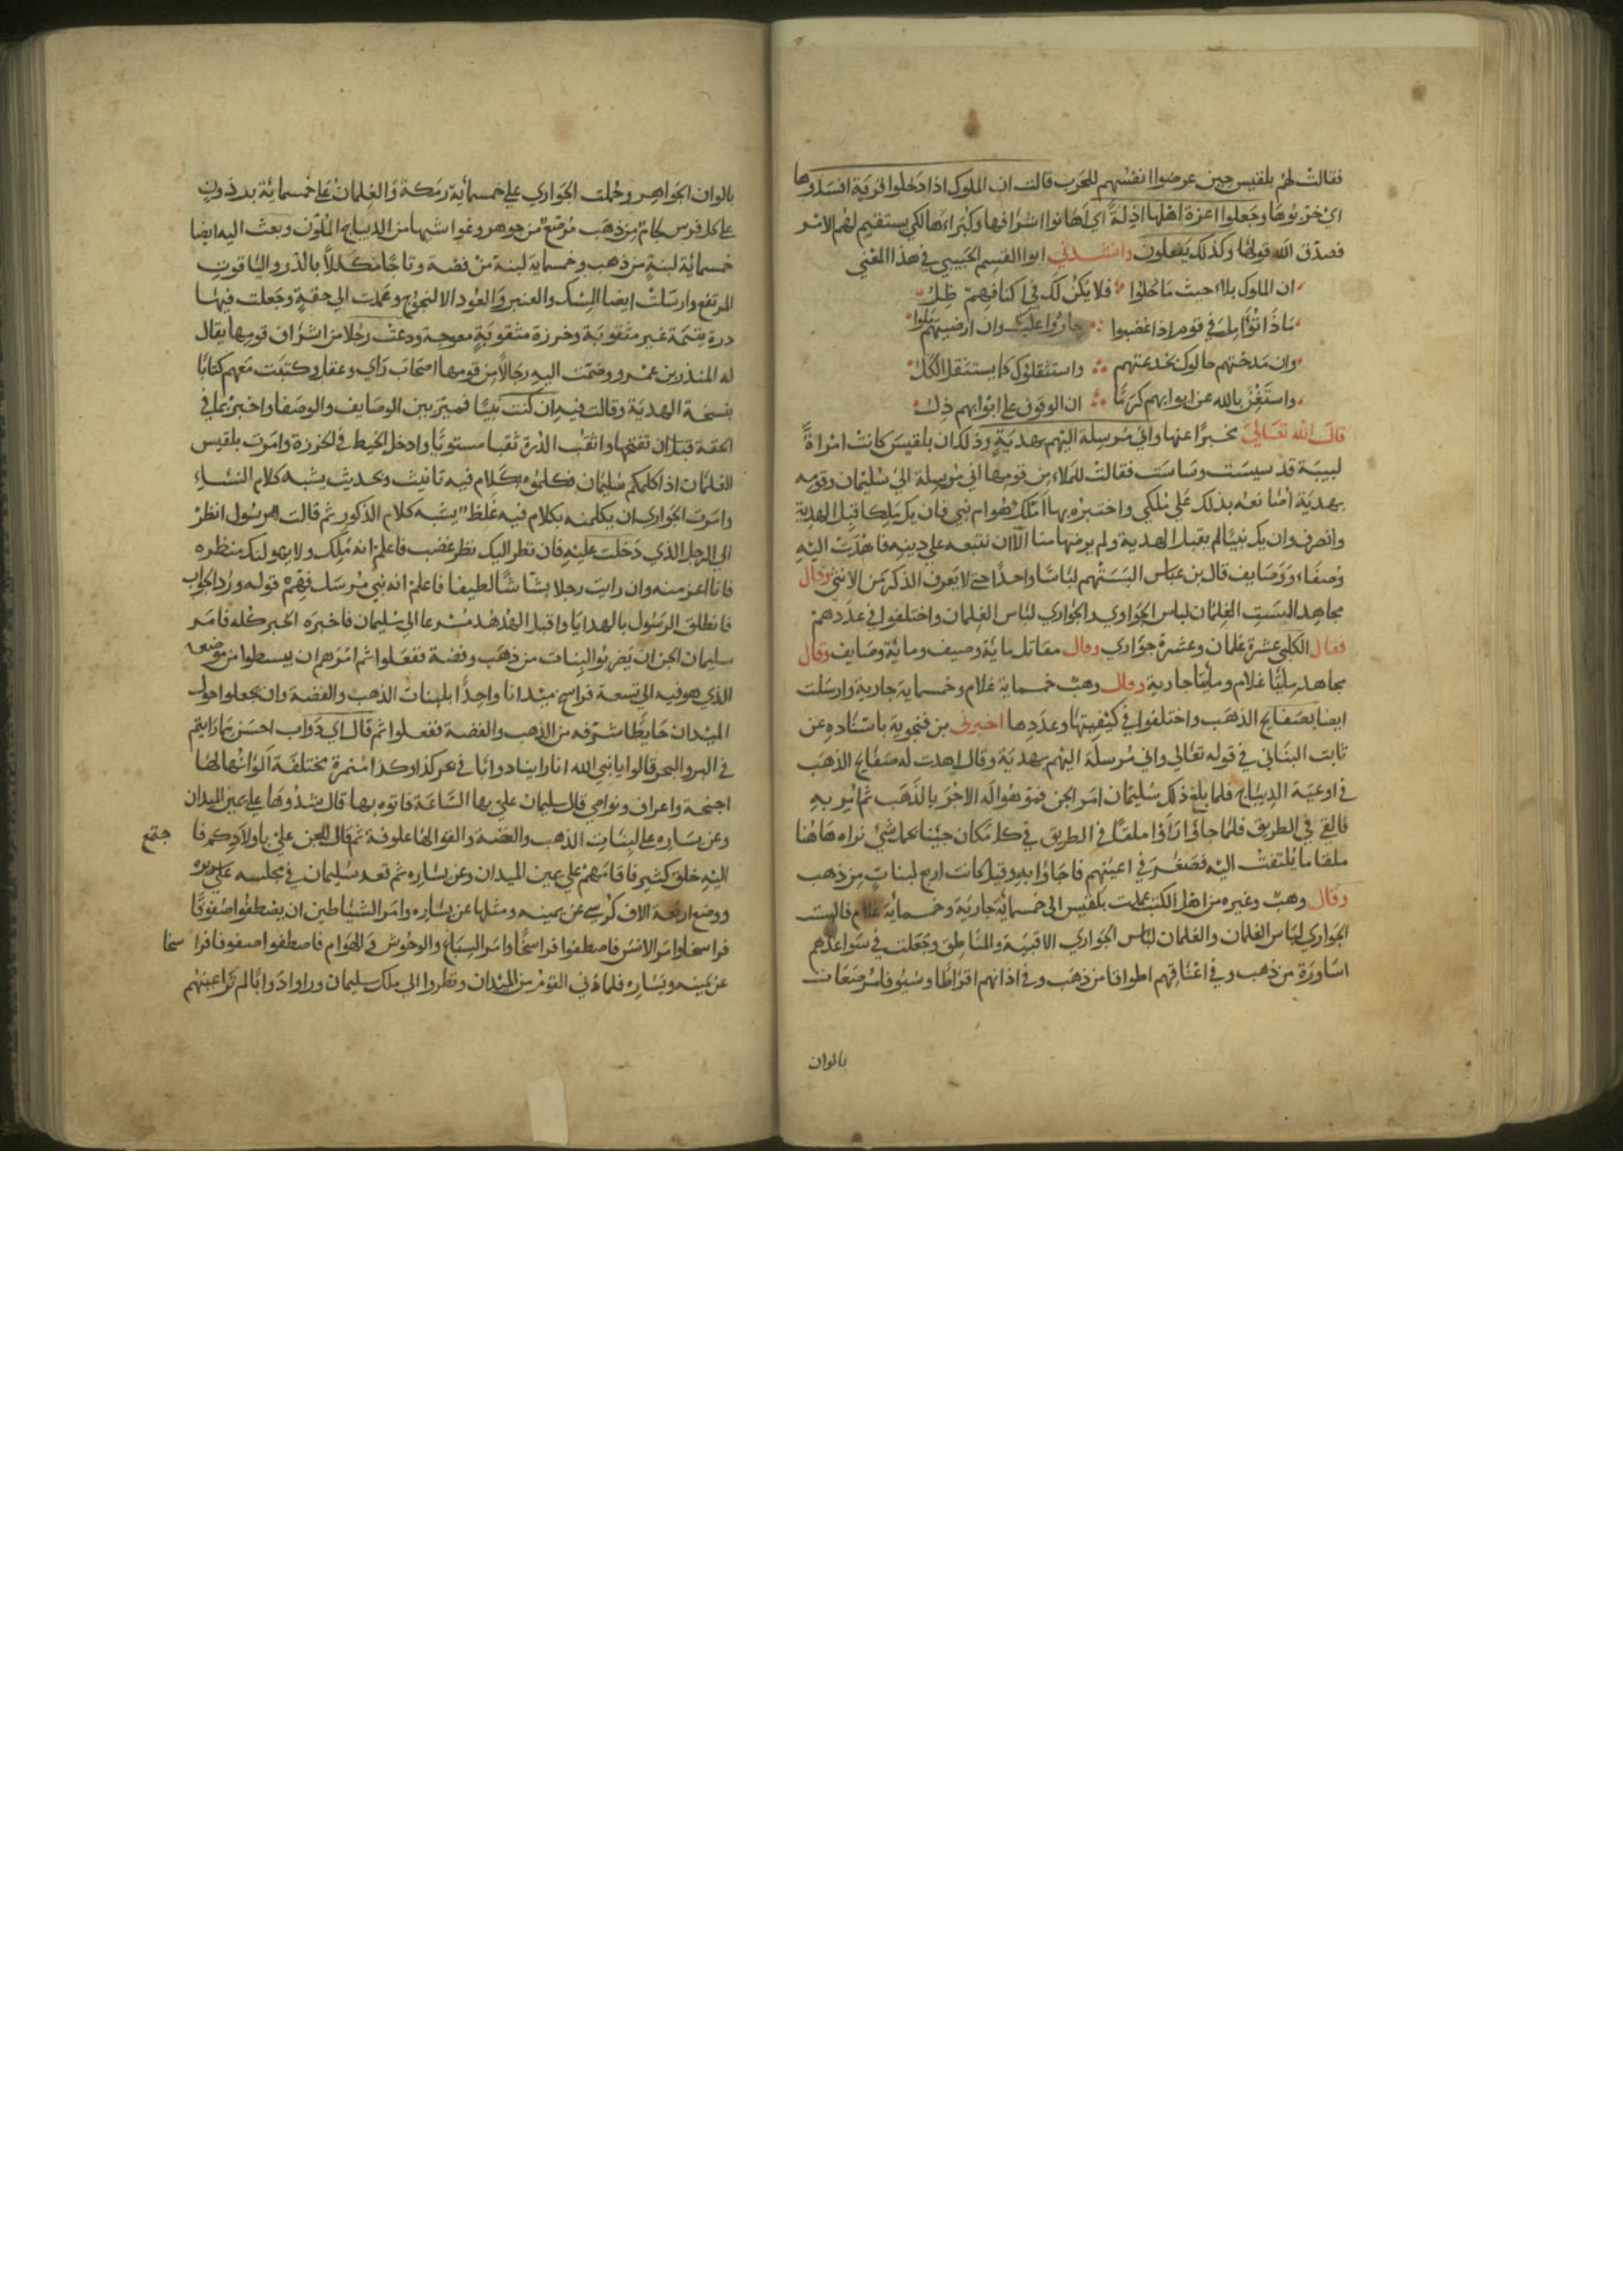 فقالت لهم بلقيس حين عرضوا انفسهم للحرب قالت ان الملوك اذا دخلوا قرية افسدوها
اي خربوها وجعلوا اعزة اهلها اذلة اي اهانوا اشرافها وكبراءها لكي يستقيم لهم الامر
فصدق الله قولها وكذلك يفعلون وانشدني ابوا القسم الحبيبي في هذا المعني
ان الملوك بلاء حيث ما حلوا فلا يكن لك في اكنافهم ظل
ماذا تؤمل في قوم اذا غضبوا جاروا عليك وان ارضيتهم ملوا
وان مدحتهم خالوك تخدعهم واستثقلوك كما يستثقل الكل
واستغن بالله عن ابوابهم كرما ان الوقوف علي ابوابهم ذل
قال الله تعالي مخبرا عنها واني مرسلة اليهم بهدية وذلك ان بلقيس كانت امراة
لبيبة قد سيست وساست فقالت للملاء من قومها اني مرسلة الي سليمان وقومه
بهدية اصانعه بذلك علي ملكي واختبره بها املك هو ام نبي فان يك ملكا قبل الهدية
وانصرف وان يك نبيا لم يقبل الهدية ولم يرضها منا الا ان نتبعه علي دينه فاهدت اليه
وصفاء ووصايف قال بن عباس البستهم لباسا واحدا حتي لا يعرف الذكر من الانثي وقال
مجاهد البست الغلمان لباس الجواري والجواري لباس الغلمان واختلفوا في عددهم
فقال الكلبي عشرة غلمان وعشرة جواري وقال مقاتل ماية وصيف وماية وصايف وقال
مجاهد مايتا غلام ومايتا جارية وقال وهب خمسماية غلام وخمسماية جارية وارسلت
ايضا بصفايح الذهب واختلفوا في كيفيتها وعددها اخبرني بن فنجوية باسناده عن
ثابت البناني في قوله تعالي واني مرسلة اليهم بهدية وقال اهدت له صفايح الذهب
في اوعية الديباج فلما بلغ ذلك سليمان امر الجن فموهوا له الاجر بالذهب ثم امر به
فالقي في الطريق فلما جاؤا راوا ملقا في الطريق في كل مكان جينا نحمل شئ نراه هاهنا
ملقا ما يلتفت اليه فصغر في اعينهم فاجاؤا به وقيل كانت اربع لبنات من ذهب
وقال وهب وغيره من اهل الكتب عمدت بلقيس الي خمسمائة جارية وخمسمائة غلام فالبست
الجواري لباس الغلمان والغلمان لباس الجواري الاقبية والمناطق وجعلت في سواعدهم
اساورة من ذهب وفي اعناقهم اطواقا من ذهب وفي اذانهم اقراطا وشنوفا مرصعات
بالوان
بالوان الجواهر وحملت الجواري علي خمسمائة رمكة والغلمان علي خمسمائة برذون
علي كل فرس لجام من ذهب مرصع من جوهر وغواشيها من الديباج الملون وبعث اليه ايضا
خمسمائة لبنة من ذهب وخمسماية لبنة من فضة وتاجا مكللا بالدر والياقوت
المرتفع وارسلت ايضا المسك والعنبر والعود الالنجوج وعمدت الي حقة وجعلت فيها
درة يتيمة غير مثقوبة وخرزة مثقوبة معوجة ودعت رجلا من اشراف قومها يقال
له المنذر بن عمرو وضمت اليه رجالا من قومها اصحاب راي وعقل وكتبت معهم كتابا
بنسخة الهدية وقالت فيه ان كنت نبيا فميز بين الوصايف والوصفا واخبر بما في
الحقة قبل ان تفتحها واثقب الدرة ثقبا مستويا وادخل الخيط في الخرزة وامرت بلقيس
الغلمان اذا كلمكم سليمان فكلموه بكلام فيه تانيث وتحديث يشبه كلام النساء
وامرت الجواري ان يكلمنه بكلام فيه غلظ يشبه كلام الذكور ثم قالت للرسول انظر
الي الرجل الذي دخلت عليه فان نظر اليك نظر غضب فاعلم انه ملك ولا يهولنك منظره
فانا اعز منه وان رايت رجلا بشاشا لطيفا فاعلم انه نبي مرسل فتفهم قوله ورد الجواب
فانطلق الرسول بالهدايا واقبل الهدهد مسرعا الي سليمان فاخبره الخبر كله فامر
سليمان الجن ان يضربوا لبنات من ذهب وفضة ففعلوا ثم امرهم ان يبسطوا من موضعه
الذي هو فيه الي تسعة فراسخ ميدانا واحدا بلبنات الذهب والفضة وان يجعلوا حول
الميدان حايطا شرفه من الذهب والفضة ففعلوا ثم قال اي دواب احسن مما رايتم
في البر والبحر قالوا يا نبي الله انا راينا دوابا في بحر كذا وكذا منمرة مختلفة الوانها لها
اجنحة واعراف ونواصي قال سليمان علي بها الساعة فاتوه بها قال شدوها علي يمين الميدان
وعن يساره علي لبنات الذهب والفضة والقوا لها علوفة ثم قال للجن علي باولادكم فا جتمع
اليه خلق كثير فاقامهم علي يمين الميدان وعن يساره ثم قعد سليمان في مجلسه علي سريره
ووضع اربعة الاف كرسي عن يمينه ومثلها عن يساره وامر الشياطين ان يصطفوا صفوفا
فراسخا وامر الانس فاصطفوا فراسخا وامر السباع والوحوش والهوام فاصطفوا صفوفا فرا سخا
عن يمينه ويساره فلما دني القوم من الميدان ونظروا الي ملك سليمان وراوا دوابا لم تر اعينهم